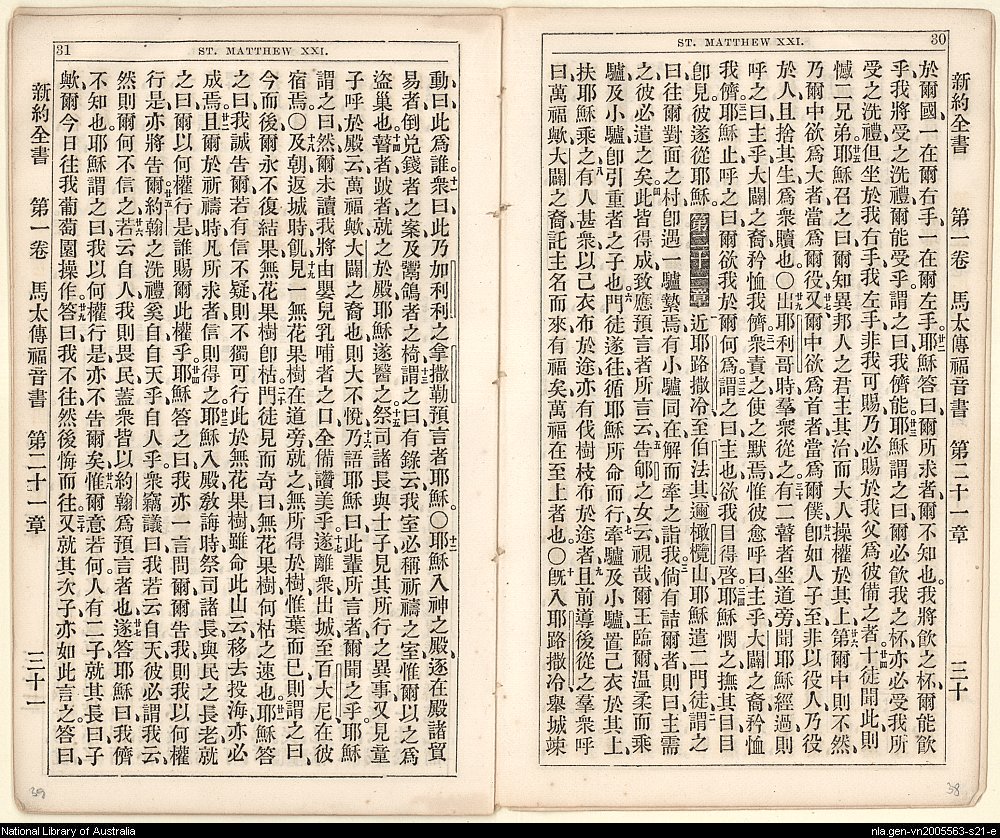 30
ST. MATTHEW XXI.
新約全書 第一卷 馬太傳福音書 第二十一章 三十
於爾國一在爾右手一在爾左手耶穌答曰爾所求者爾不知也我將飲之杯爾能飲
乎我將受之洗禮爾能受乎謂之曰我儕能耶穌謂之曰爾必飲我之杯亦必受我所
受之洗禮但坐於我右手我左手非我可賜乃必賜於我父為彼備之者十徒聞此則
憾二兄弟耶穌召之曰爾知異邦人之君主其治而大人操權於其上第爾中則不然
乃爾中欲為大者當為爾役又爾中欲為首者當為爾僕卽如人子至非以役人乃役
於人且捨其生為衆贖也〇出耶利哥時羣衆從之有二瞽者坐道旁聞耶穌經過則
呼之曰主乎大闢之裔矜恤我儕衆責之使之默焉惟彼愈呼曰主乎大闢之裔矜恤
我儕耶穌止呼之曰爾欲我於爾何為謂之曰主也欲我目得啓耶穌憫之撫其目目
卽見彼遂從耶穌 第二十一章 近耶路撒冷至伯法其邇橄欖山耶穌遣二門徒謂之
曰往爾對面之村卽遇一驢縶焉有小驢同在解而牽之詣我倘有詰爾者則曰主需
之彼必遣之矣此皆得成致應預言者所言云告郇之女云視哉爾王臨爾溫柔而乘
驢及小驢卽引重者之子也門徒遂往循耶穌所命而行牽驢及小驢置己衣於其上
扶耶穌乘之有人甚衆以己衣布於途亦有伐樹枝布於途者且前導後從之羣衆呼
曰萬福歟大闢之裔託主名而來有福矣萬福在至上者也〇旣入耶路撒冷舉城竦
38
31
ST. MATTHEW XXI.
動曰此為誰衆曰此乃加利利之拿撒勒預言者耶穌〇耶穌入神之殿逐在殿諸貿
易者倒兌錢者之案及鬻鴿者之椅謂之曰有錄云我室必稱祈禱之室惟爾以之為
盜巢也瞽者跛者就之於殿耶穌遂醫之祭司諸長與士子見其所行之異事又見童
子呼於殿云萬福歟大闢之裔也則大不悅乃語耶穌曰此輩所言者爾聞之乎耶穌
謂之曰然爾未讀我將由嬰兒乳哺者之口全備讚美乎遂離衆出城至百大尼在彼
宿焉〇及朝返城時飢見一無花果樹在道旁就之無所得於樹惟葉而已則謂之曰
今而後爾永不復結果無花果樹卽枯門徒見而奇曰無花果樹何枯之速也耶穌答
之曰我誠告爾若有信不疑則不獨可行此於無花果樹雖命此山云移去投海亦必
成焉且爾於祈禱時凡所求者信則得之耶穌入殿教誨時祭司諸長與民之長老就
之曰爾以何權行是誰賜爾此權乎耶穌答之曰我亦一言問爾爾告我則我以何權
行是亦將告爾約翰之洗禮奚自自天乎自人乎衆竊議曰我若云自天彼必謂我云
然則爾何不信之若云自人我則畏民蓋衆皆以約翰為預言者也遂答耶穌曰我儕
不知也耶穌謂之曰我以何權行是亦不告爾矣惟爾意若何人有二子就其長曰子
歟爾今日往我葡萄園操作答曰我不往然後悔而往又就其次子亦如此言之答曰
新約全書 第一卷 馬太傳福音書 第二十一章 三十一
39
National Library of Australia
nla.gen-vn2005563-s21-e